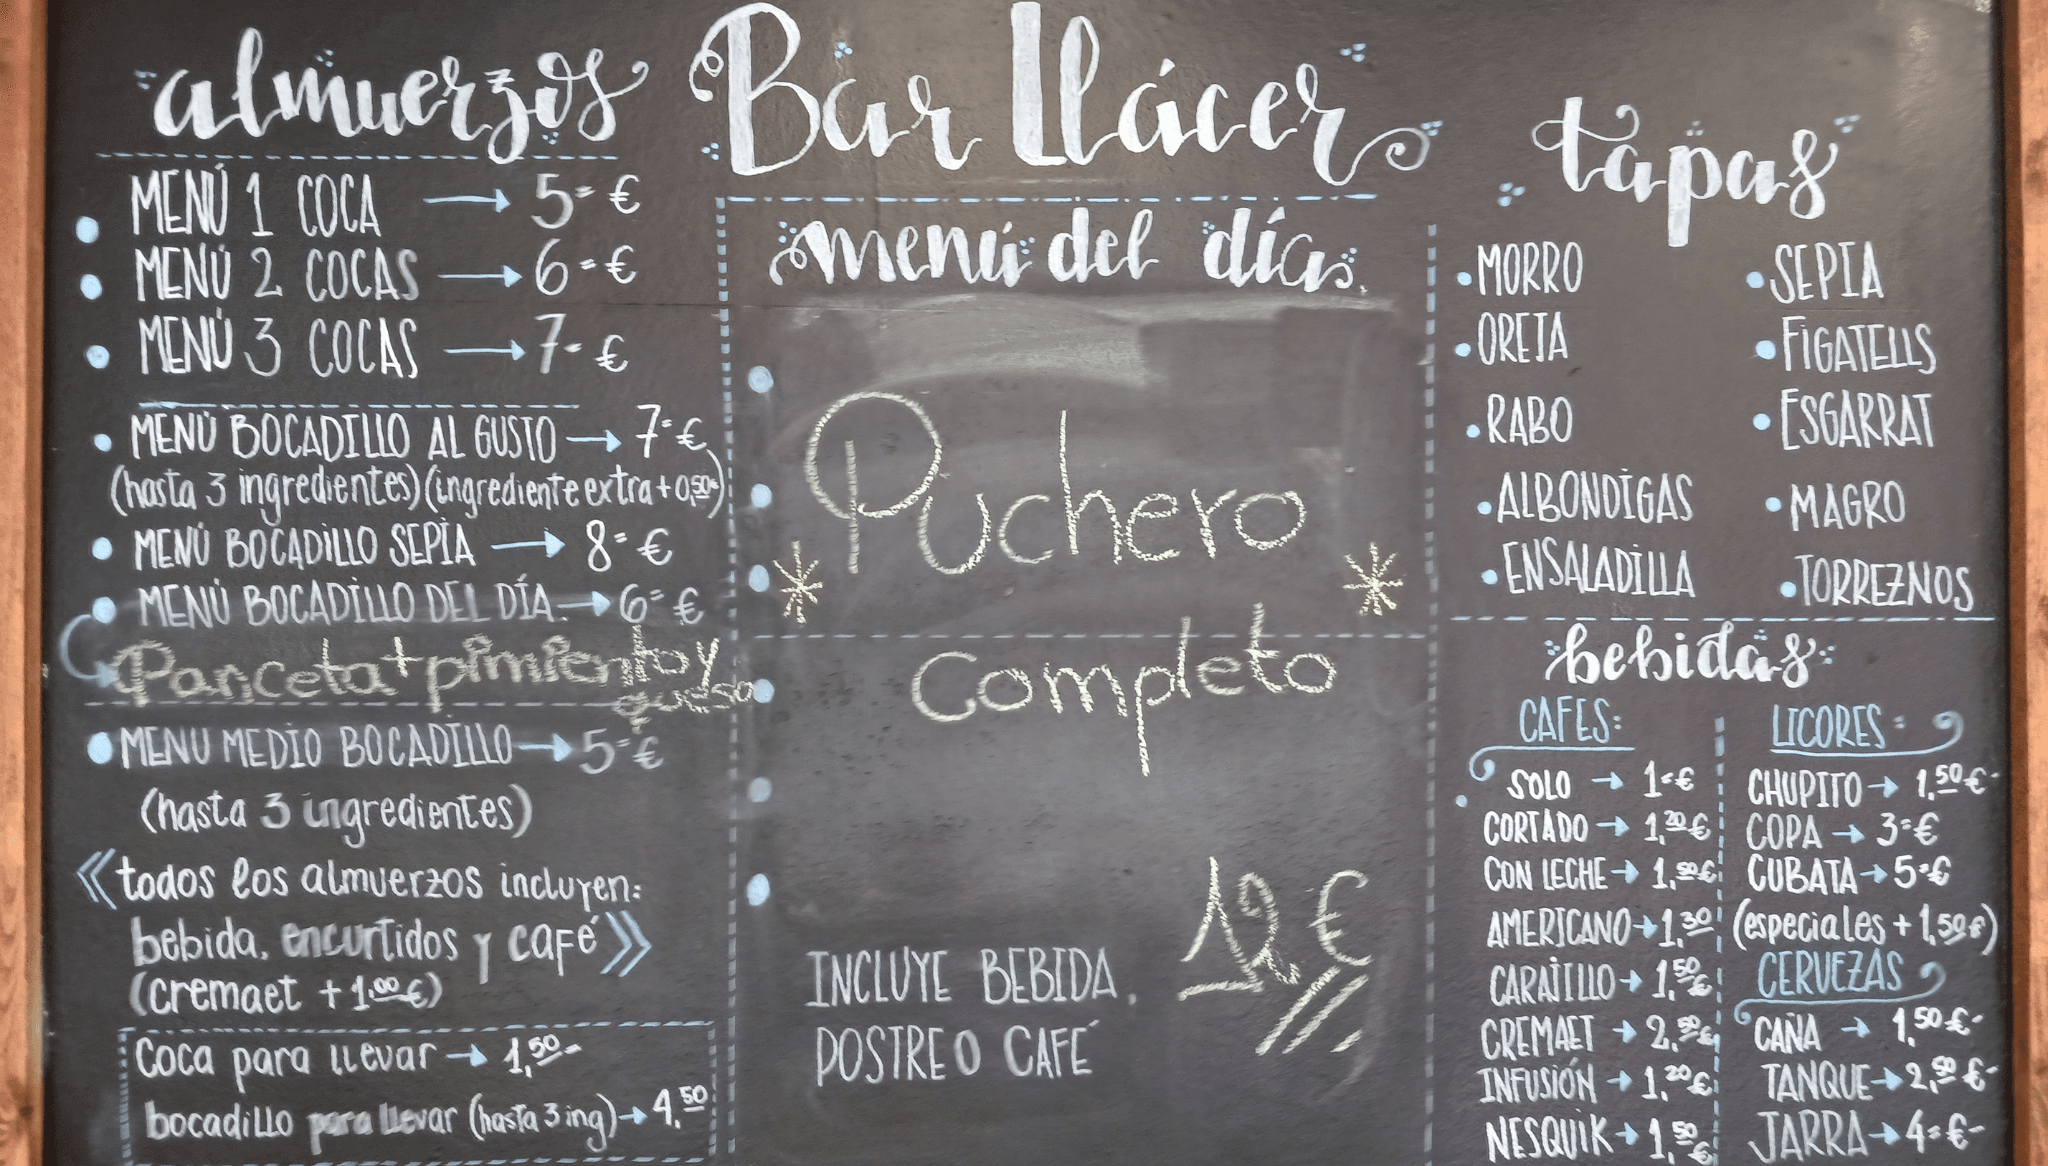 Bar Llácer
almuerzos
MENÚ 1 COCA → 5= €
MENÚ 2 COCAS → 6= €
MENÚ 3 COCAS → 7- €
MENÚ BOCADILLO AL GUSTO → 7= €
(hasta 3 ingredientes) (ingrediente extra + 0,50€)
MENÚ BOCADILLO SEPIA → 8= €
MENÚ BOCADILLO DEL DÍA. → 6= €
Panceta + pimiento y
queso
MENU MEDIO BOCADILLO → 5= €
(hasta 3 ingredientes)
《todos los almuerzos incluyen:
bebida, encurtidos y café》
(cremaet + 1,00€)
Coca para llevar → 1,50-
bocadillo para llevar (hasta 3 ing) → 4,50
menú del día.
Puchero
Completo
12 €
INCLUYE BEBIDA,
POSTRE O CAFÉ
tapas
MORRO
OREJA
RABO
ALBONDIGAS
ENSALADILLA
SEPIA
FIGATELLS
ESGARRAT
MAGRO
TORREZNOS
bebidas
CAFES:
SOLO → 1=€
CORTADO → 1,20€
CON LECHE → 1,50€
AMERICANO → 1,30
CARAJILLO → 1,50€
CREMAET → 2,50€
INFUSIÓN → 1,20€
NESQUIK → 1,50€
LICORES:
CHUPITO → 1,50€-
COPA → 3=€
CUBATA → 5=€
(especiales + 1,50€)
CERVEZAS
CAÑA → 1,50€-
TANQUE → 2,50€-
JARRA → 4=€-